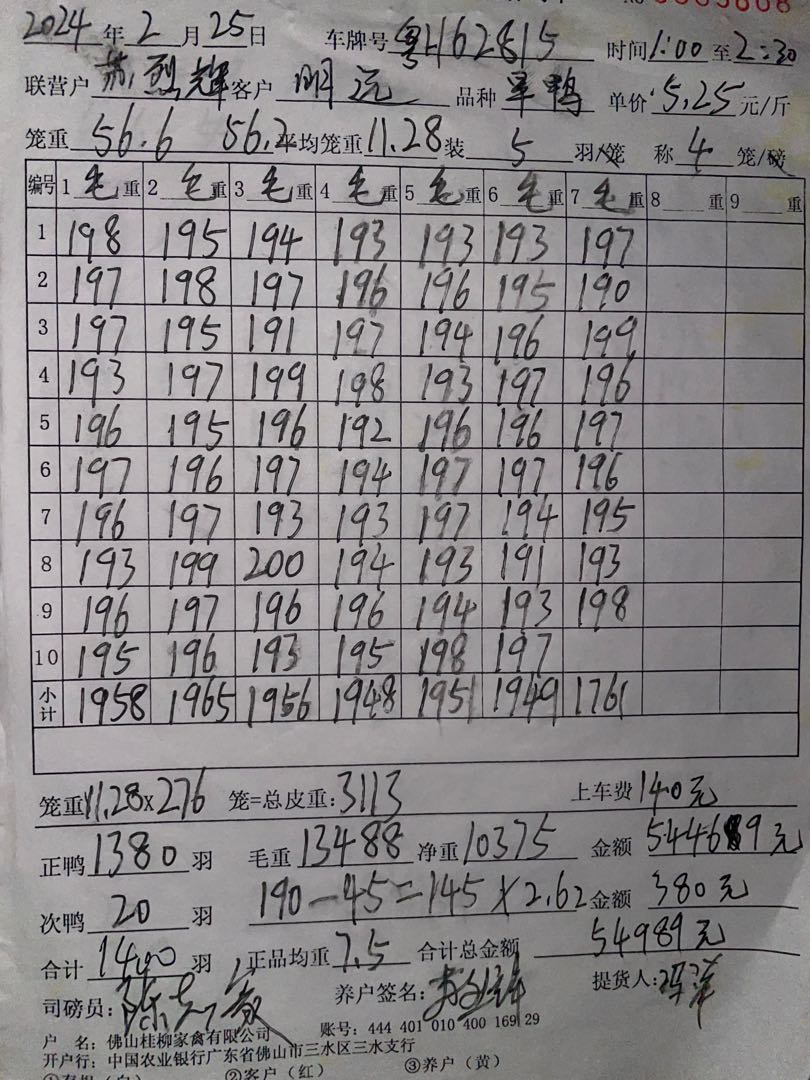 2024年2月25日 车牌号粤H62815 时间1:00至2:30
联营户 苏烈辉 客户 明记 品种 草鸭 单价5.25元/斤
笼重 56.6 56.2 平均笼重11.28装 5 羽/笼 称 4 笼/磅
编号 1毛重 2毛重 3毛重 4毛重 5毛重 6毛重 7毛重 8 重 9 重
1 198 195 194 193 193 193 197
2 197 198 197 196 196 195 190
3 197 195 191 197 194 196 199
4 193 197 199 198 193 197 196
5 196 195 196 192 196 196 197
6 197 196 197 194 197 197 196
7 196 197 193 193 197 194 195
8 193 199 200 194 193 191 193
9 196 197 196 196 194 193 198
10 195 196 193 195 198 197
小计 1958 1965 1956 1948 1951 1949 1761
笼重11.28×276 笼=总皮重:3113 上车费140元
正鸭1380羽 毛重13488 净重10375 金额 54469元
次鸭 20 羽 190-45=145×2.62 金额 380元
合计1400羽 正品均重7.5 合计总金额 54989元
司磅员: 养户签名: 提货人:
户 名:佛山桂柳家禽有限公司 账号:444 401 010 400 169 29
开户行:中国农业银行广东省佛山市三水区三水支行
②客户(红) ③养户(黄)